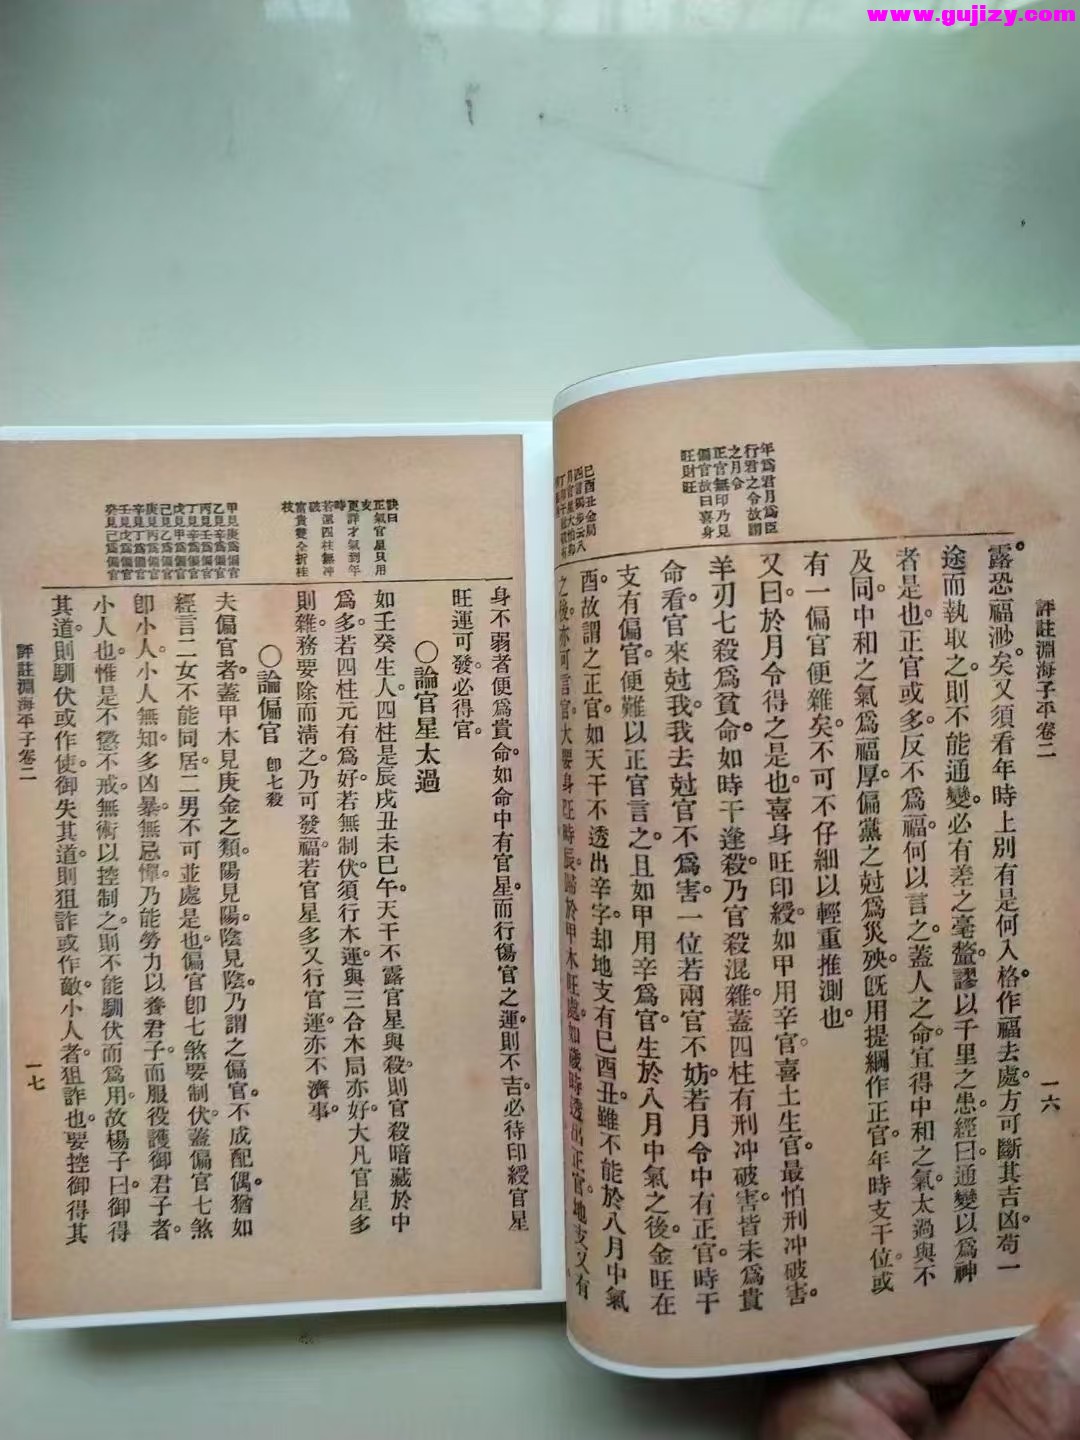 www.gujizy.com
評註淵海子平卷二
一六
年爲君月爲臣
行君之令故謂
之月令
正官無印乃見
偏官故曰喜身
旺財旺
巳酉丑金局
露恐福渺矣又須看年時上別有是何入格作福去處方可斷其吉凶苟一
途而執取之則不能通變必有差之毫釐謬以千里之患經曰通變以爲神
者是也正官或多反不爲福何以言之蓋人之命宜得中和之氣太過與不
及同中和之氣爲福厚偏黨之尅爲災殃旣用提綱作正官年時支干位或
有一偏官便雜矣不可不仔細以輕重推測也
又曰於月令得之是也喜身旺印綬如甲用辛官喜土生官最怕刑冲破害
羊刃七殺爲貧命如時干逢殺乃官殺混雜蓋四柱有刑冲破害皆未爲貴
命看官來尅我我去尅官不爲害一位若兩官不妨若月令中有正官時干
支有偏官便難以正官言之且如甲用辛爲官生於八月中氣之後金旺在
酉故謂之正官如天干不透出辛字却地支有巳酉丑雖不能於八月中氣
之後亦可言官大要身旺時辰歸於甲木旺處如歲時透出正官地支又有
身不弱者便爲貴命如命中有官星而行傷官之運則不吉必待印綬官星
旺運可發必得官
○論官星太過
如壬癸生人四柱是辰戌丑未巳午天干不露官星與殺則官殺暗藏於中
爲多若四柱元有爲好若無制伏須行木運與三合木局亦好大凡官星多
則雜務要除而淸之乃可發福若官星多又行官運亦不濟事
○論偏官 卽七殺
夫偏官者蓋甲木見庚金之類陽見陽陰見陰乃謂之偏官不成配偶猶如
經言二女不能同居二男不可並處是也偏官卽七煞要制伏蓋偏官七煞
卽小人小人無知多凶暴無忌憚乃能勞力以養君子而服役護御君子者
小人也惟是不懲不戒無術以控制之則不能馴伏而爲用故楊子曰御得
其道則馴伏或作使御失其道則狙詐或作敵小人者狙詐也要控御得其
訣曰
正氣官星只用
支
更詳才氣到年
時
若還四柱無冲
破
富貴雙全折桂
枝
甲見庚爲偏官
乙見辛爲偏官
丙見壬爲偏官
丁見辛爲偏官
戊見甲爲偏官
己見乙爲偏官
庚見丙爲偏官
辛見丁爲偏官
壬見戊爲偏官
癸見己爲偏官
評註淵海子平卷二
一七